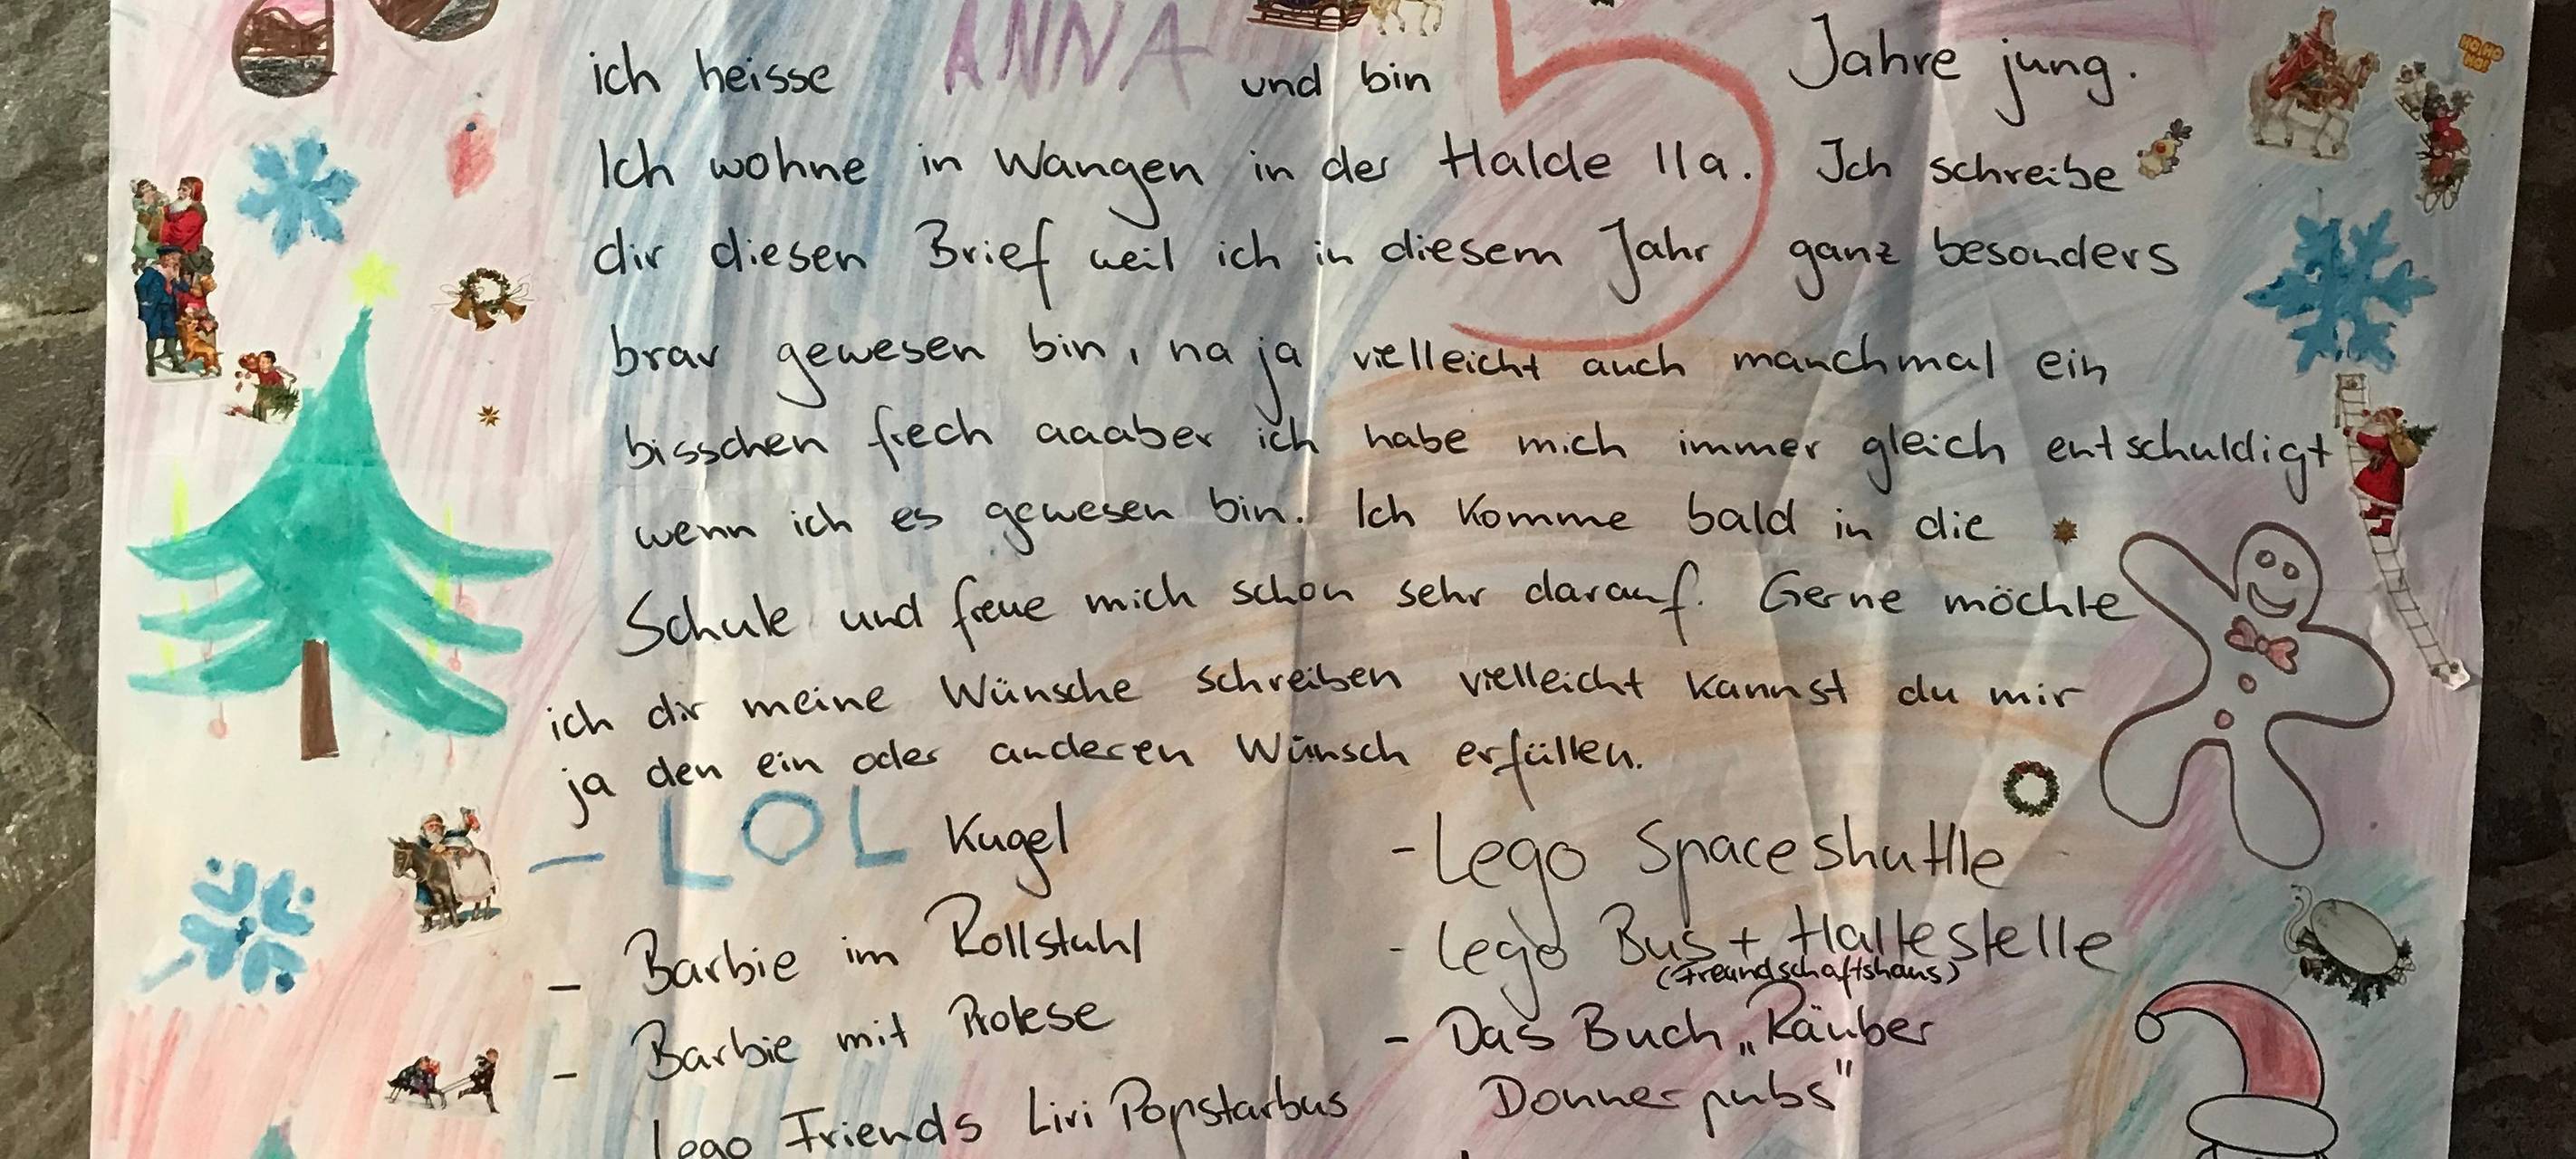 ich heisse ANNA und bin 5 Jahre jung.
Ich wohne in Wangen in der Halde 11a. Ich schreibe
dir diesen Brief weil ich in diesem Jahr ganz besonders
brav gewesen bin, na ja vielleicht auch manchmal ein
bisschen frech aaaber ich habe mich immer gleich entschuldigt
wenn ich es gewesen bin. Ich komme bald in die
Schule und freue mich schon sehr darauf. Gerne möchte
ich dir meine Wünsche schreiben vielleicht kannst du mir
ja den ein oder anderen Wünsch erfüllen.
- LOL Kugel
- Barbie im Rollstuhl
- Barbie mit Protese
Lego Friends Livi Popstarbus
- Lego Spaceshuttle
- Lego Bus + Haltestelle
(Freundschaftshaus)
- Das Buch „Räuber
Donnerpubs"
HO HO
HO!